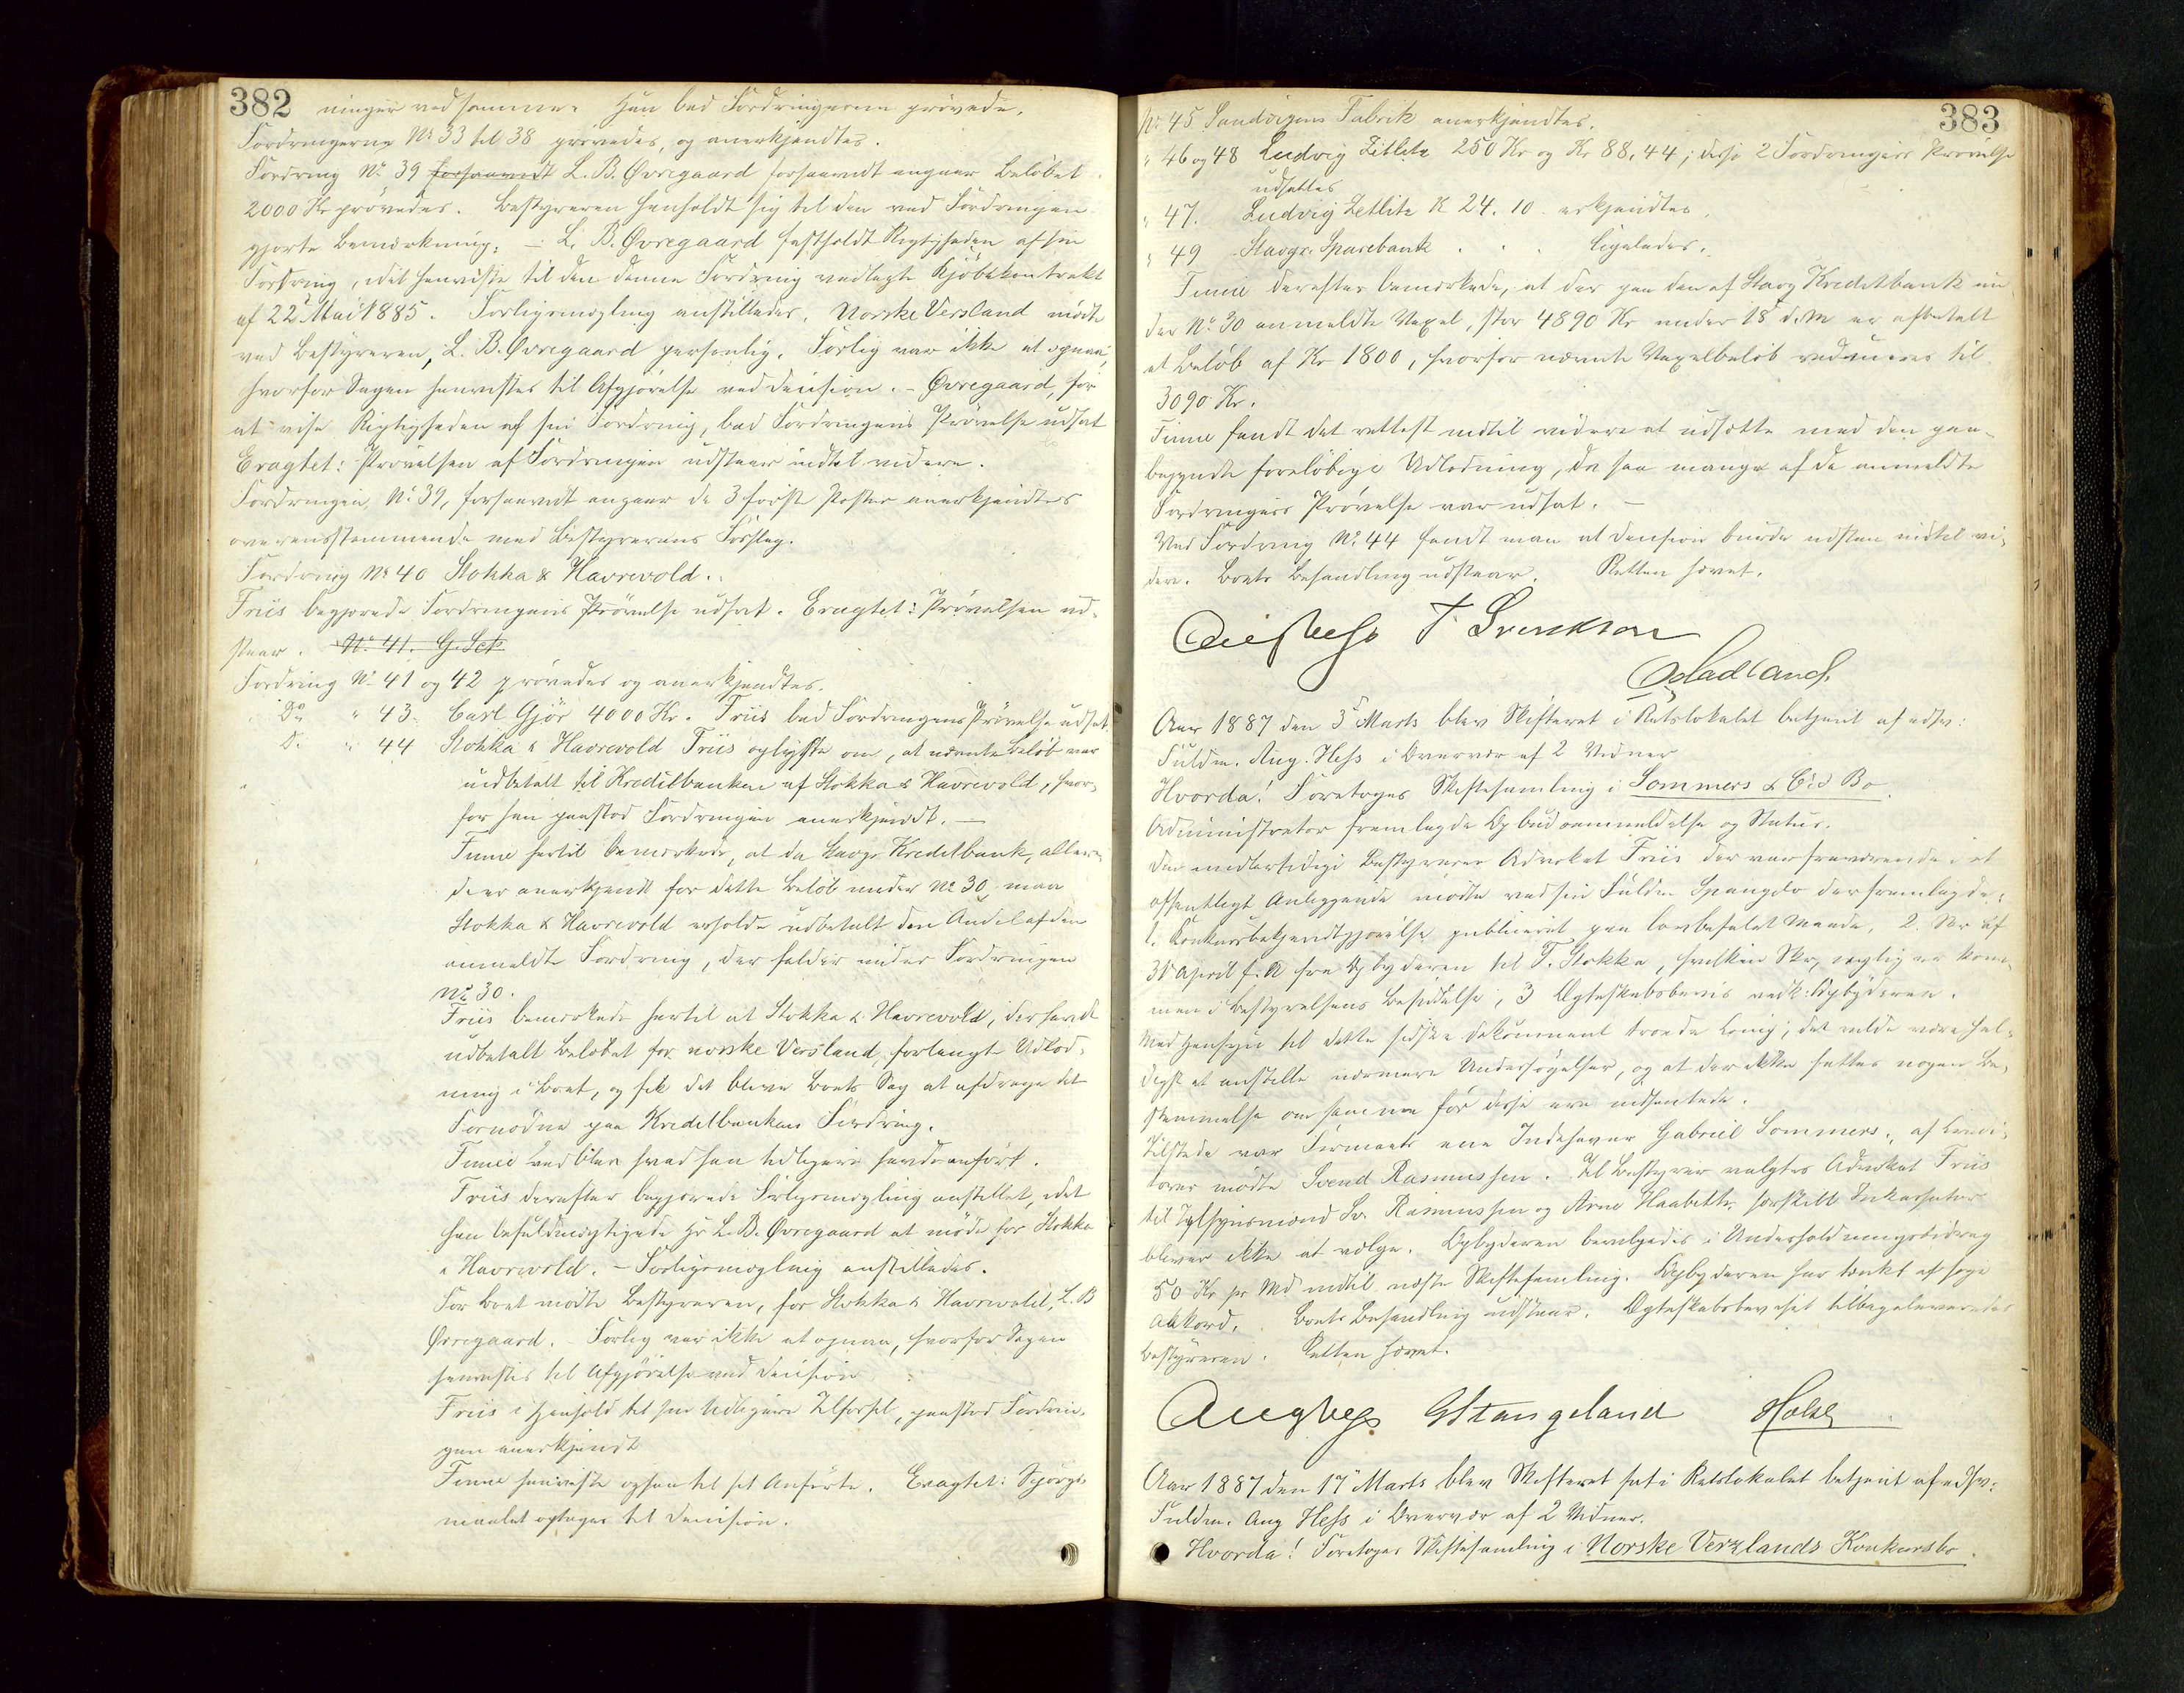 382
ninger ved samme. Han bad Fordringerne prövede.
Fordringerne No 33 til 38 prövedes, og anerkjendtes.
Fordring No 39 forsaavidt L. B. Øvregaard forsaavidt angaar Belöbet
2000 Kr prövedes. Bestyreren henholdt sig til den ved Fordringen
gjorte Bemærkning. – L. B. Øvregaard fastholdt Rigtigheden af sin
Fordring, idet henviste til den denne Fordring vedlagte Kjöbekontrakt
af 22 Mai 1885. Forligsmægling anstilledes. Norske Versland mödte
ved Bestyreren, L. B. Øvregaard personlig. Forlig var ikke at opnaa,
hvorfor Sagen henvistes til Afgjörelse ved Decision. – Øvregaard, for
at vise Rigtigheden af sin Fordring, bad Fordringens Prövelse udsat
Eragtet: Prövelsen af Fordringen udstaar indtil videre.
Fordringen No 39, forsaavidt angaar de 3 förste Poster anerkjendtes
overensstemmende med Bestyrerens Forslag.
Fordring No 40 Stokka & Havrevold.
Friis begjærede Fordringens Prövelse udsat. Eragtet: Prövelsen ud-
staar. No 41. G. Sck
Fordring No 41 og 42 prövedes og anerkjendtes.
Do " 43. Carl Gjör 4000 Kr. Friis bad Fordringens Prövelse udsat.
D. " 44 Stokka & Havrevold Friis oplyste om, at nævnte Belöb var
indbetalt til Kreditbanken af Stokka & Havrevold, hvor-
for han paastod Fordringen anerkjendt. –
Finne hertil bemærkede, at da Stavgr Kreditbank, allere-
de er anerkjendt for dette Belöb under No 30, maa
Stokka & Havrevold erholde udbetalt den Andel af den
anmeldte Fordring, der falder under Fordringen
No 30.
Friis bemærkede hertil at Stokka & Havrevold, der havde
udbetalt Belöbet for norske Versland, forlangte Udlod-
ning i Boet, og fik det blive Boets Sag at afdrage det
Fornödne paa Kreditbankens Fordring.
Finne vedblev hvad han tidligere havde anfört.
Friis derefter begjærede Forligsmægling anstillet, idet
han befuldmægtigede Hr L. B. Øvregaard at möde for Stokka
& Havrevold. – Forligsmægling anstilledes.
For Boet mödte Bestyreren, for Stokka & Havrevold, L. B
Øvregaard. – Forlig var ikke at opnaa, hvorfor Sagen
henvistes til Afgjörelse ved Decision
Friis i Henhold til sin tidligere Tilförsel, paastod Fordrin-
gen anerkjendt
Finne henviste ogsaa til sit Anförte. Eragtet: Spörgs-
maalet optages til Decision.
383
No 45 Sandvigens Fabrik anerkjendtes.
" 46 og 48 Ludvig Zetlitz 250 Kr og Kr 88,44; disse 2 Fordringers Prövelse
udsattes
" 47. Ludvig Zetlitz K 24.10. erkjendtes.
" 49 Stavgr. Sparebank . . . ligeledes.
Finne derefter bemærkede, at der paa den af Stavg Kreditbank un-
der No 30 anmeldte Vexel, stor 4890 Kr under 18 d.M. er afbetalt
et Belöb af Kr 1800, hvorfor nævnte Vexelbelöb reduceres til
3090 Kr.
Finne fandt det rettest indtil videre at udsætte med den paa-
begyndte foreløbige Udlodning, da saa mange af de anmeldte
Fordringers Prövelse var udsat. –
Ved Fordring No 44 fandt man at Decision burde udstaa indtil vi-
dere. Boets Behandling udstaar. Retten hævet.
Aug Hess T. Svendsen
Osladland.
Aar 1887 den 3 Marts blev Skifteret i Retslokalet betjent af edsv:
Fuldm. Aug. Hess i Overvær af 2 Vidner
Hvorda! Foretoges Skiftesamling i Sommers & Cos Bo.
Administrator fremlagde Opbudsanmeldelse og Status.
Den midlertidige Bestyrer Advokat Friis der var fraværende i et
offentligt Anliggende mødte ved sin Fuldm Spangelo der fremlagde:
1. Konkursbekjendtgjørelse publiceret paa lovbefalet Maade, 2. Skr af
31 April f. A fra Opbyderen til T. Stokka, hvilken Skr, nylig er kom-
men i Bestyrelsens Besiddelse, 3 Ægteskabsbevis vedk. Opbyderen.
Med Hensyn til dette sidste Dokument troede König, det vilde være hel-
digst at anstille nærmere Undersøgelser, og at der ikke fattes nogen Be-
stemmelse om samme før disse ere indhentede.
Tilstede var Firmaets ene Indehaver Gabriel Sommers. af Kredi-
torer mødte Svend Rasmussen. Til Bestyrer valgtes Advokat Friis
til Tilsynsmænd Sv. Rasmussen og Arne Haabeth. særskilt Inkassator
bliver ikke at vælge. Opbyderen bevilgedes i Underholdningsbidrag
50 Kr pr Md indtil næste Skiftesamling. Opbyderen har tænkt at søge
Akkord. Boets Behandling udstaar. Ægteskabsbeviset tilbageleveredes
Bestyreren. Retten hævet.
Aug Hess GStangeland Holst
Aar 1887 den 17 Marts blev Skifteret sat i Retslokalet betjent af edsv:
Fuldm. Aug Hess i Overvær af 2 Vidner.
Hvorda! Foretoges Skiftesamling i Norske Verzlands Konkursbo.